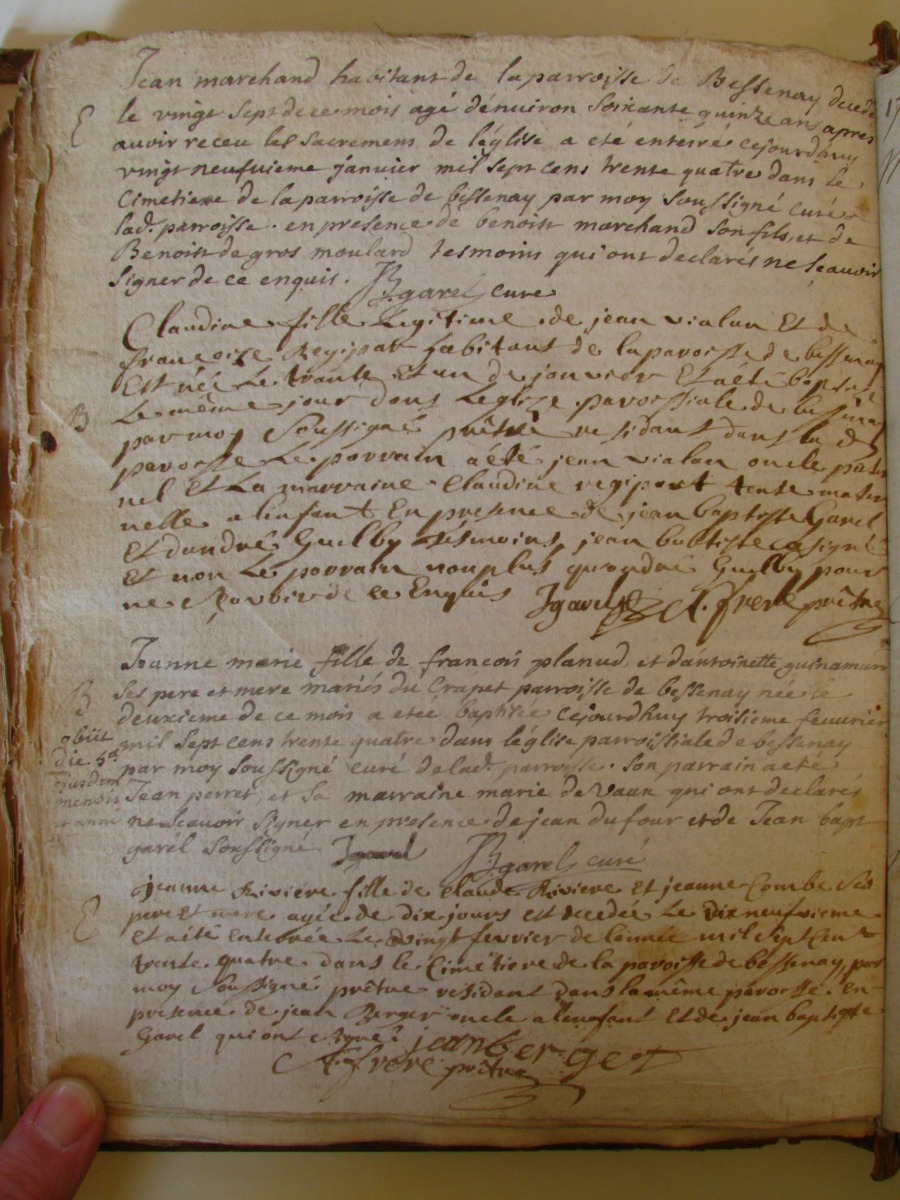 Jean marchand habitant de la parroisse de Bessenay decedé
le vingt sept de ce mois agé d'environ soixante quinze ans apres
E
auoir receu les sacremens de l'église a eté enterré cejourdhuy
vingt neufuieme januier mil sept cens trente quatre dans le
Cimetiere de la parroisse de bessenay par moy soussigné curé de
lad. parroisse. en presence de benoist marchand son fils, et de
Benoist de gros moulard tesmoins qui ont declarés ne sçauoir
signer de ce enquis. B garel curé
Claudine fille Legitime de jean vialun Et de
francoize Regipat habitants de la paroisse de bessenay
Est née Le trante Et un de janvier Et a été baptisé
Le même jour dans Leglize paroissiale de bessenay
B
par moy soussigné prêtre residant dans la d
paroisse Le parrain a été jean vialun oncle pater
nel Et La marraine Claudine regipat tente mater
nelle a Lenfant En presence de jean baptiste Garel
Et dandré Guelby tésmoins, jean baptiste a signé
Et non Le parrain non plus quandré Guelby pour
ne sçavoir de ce Enquis Jgarel A. frere prêtre
Jeanne marie fille de francois planud et d'antoinette guinamard
B
ses pere et mere mariés du Crapet parroisse de bessenay née le
deuxieme de ce mois a etee baptisée cejourdhuy troisieme feuurier
obiit
mil sept cens trente quatre dans l'église parroissiale de bessenay
die 5a
par moy soussigné curé de lad. parroisse. son parrain a eté
ejusdem
mensis
Jean perret, et sa marraine marie de vaux qui ont declarés
et anni
ne sçauoir signer en presence de jean du four et de Jean bapt
garél soussigné. Jgarel B garel curé
jeanne Riviere fille de Claude Riviere Et jeanne Combe ses
E
pere et mere agée de dix jours est decedée Le Dixneufvieme
Et a été enterrée Le vingt fevrier de lannée mil sept Cent
trente quatre dans le Cimetiere de la paroisse de bessenay, par
moy soussigné prêtre residant dans la même paroisse. En
presence de jean Berger oncle a lenfant Et de jean baptiste
Garel qui ont signéz jean berger
A. frere prêtre